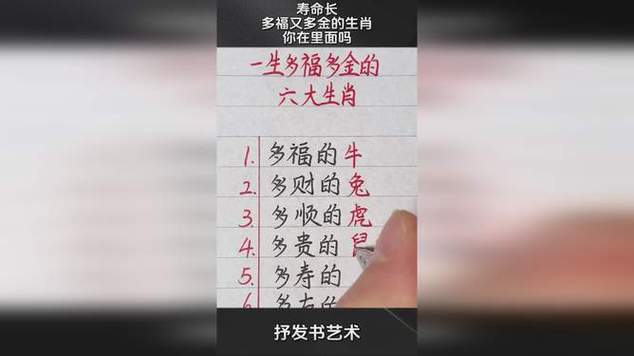 寿命长
多福又多金的生肖
你在里面吗
一生多福多金的
六大生肖
1. 多福的牛
2. 多财的兔
3. 多顺的虎
4. 多贵的鼠
5. 多寿的
抒发书艺术